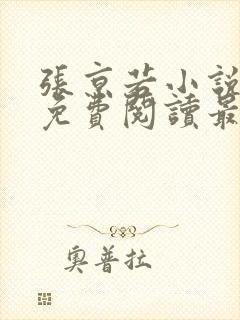 張京若小說
免費閱讀最
奧普拉